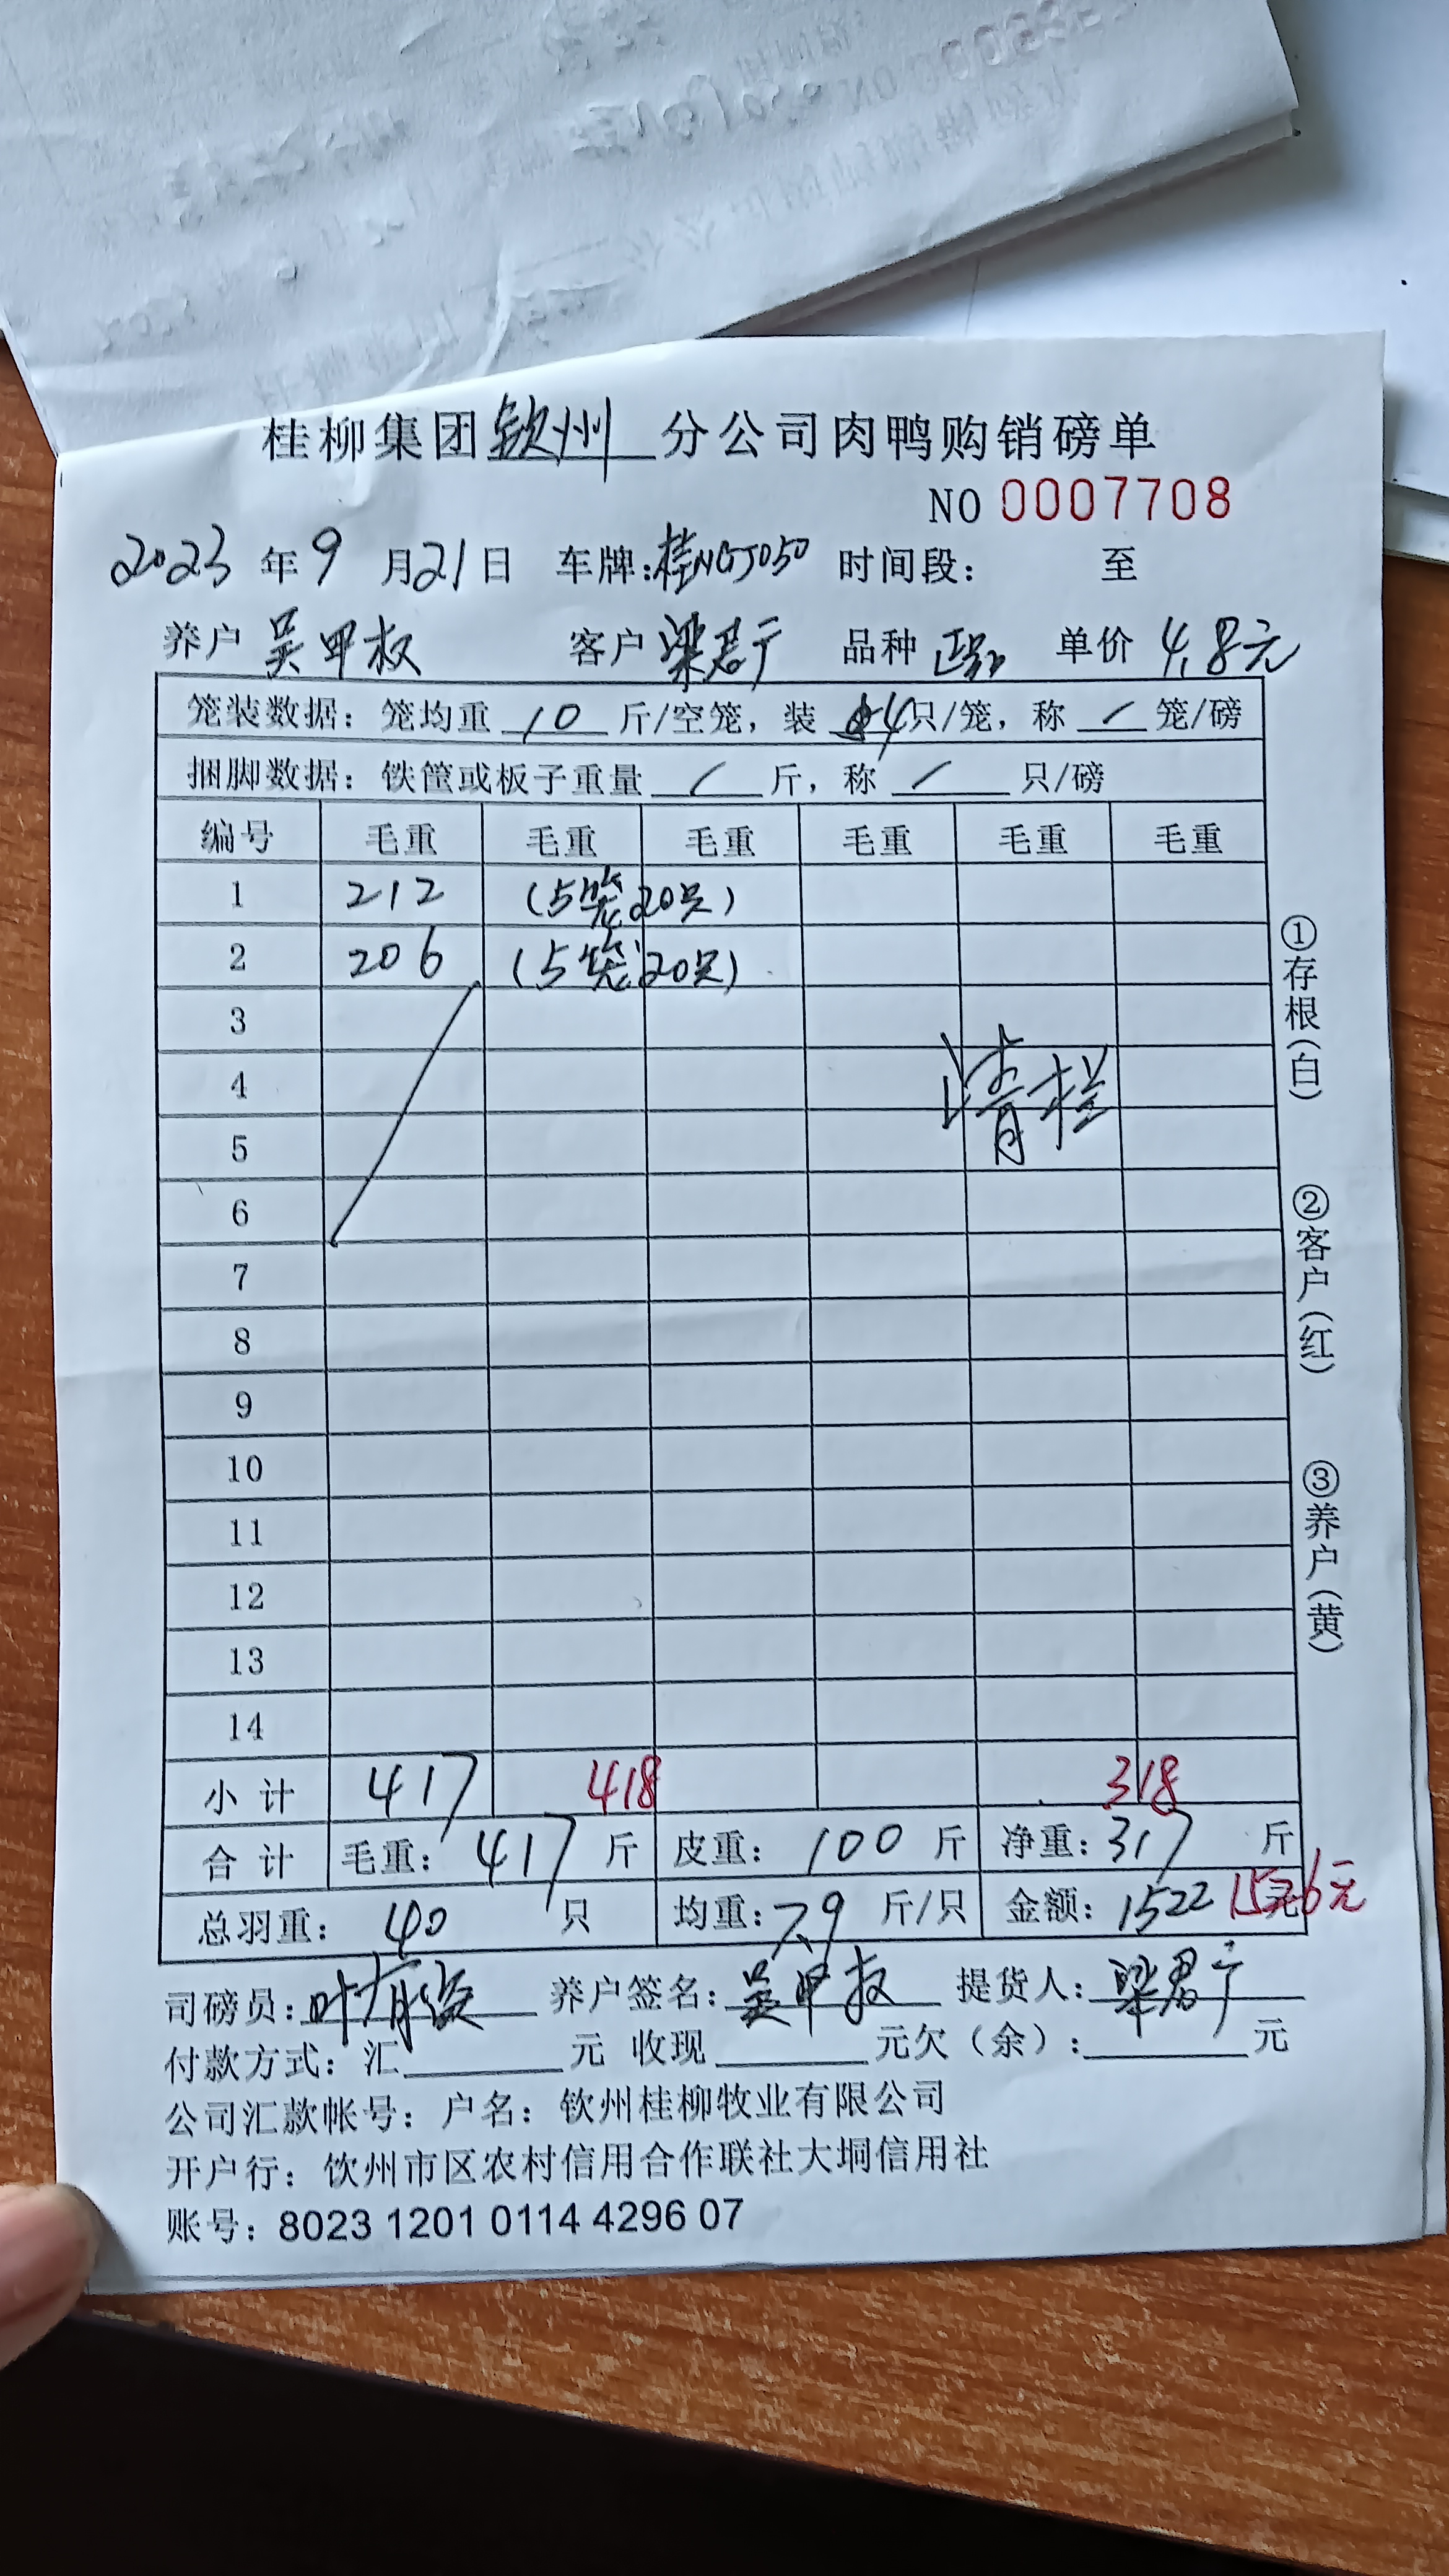 桂柳集团钦州分公司肉鸭购销磅单
NO 0007708
2023年9月21日 车牌:桂NGJ050 时间段: 至
养户 吴甲权 客户 梁君广 品种 正品 单价 4.8元
笼装数据: 笼均重 10 斤/空笼, 装 4只/笼, 称 / 笼/磅
捆脚数据: 铁筐或板子重量 / 斤, 称 / 只/磅
编号 毛重 毛重 毛重 毛重 毛重 毛重
1 212 (5笼20只)
2 206 (5笼20只)
3
4
5
清栏
6
7
8
9
10
11
12
13
14
小计 417 418 318
合计 毛重: 417 斤 皮重: 100 斤 净重: 317 斤
总羽重: 40 只 均重: 7.9 斤/只 金额: 1522 元 1526元
司磅员: 养户签名: 吴甲权 提货人: 梁君广
付款方式: 汇 元 收现 元欠(余): 元
公司汇款帐号: 户名: 钦州桂柳牧业有限公司
开户行: 钦州市区农村信用合作联社大垌信用社
账号: 8023 1201 0114 4296 07
①存根(白) ②客户(红) ③养户(黄)